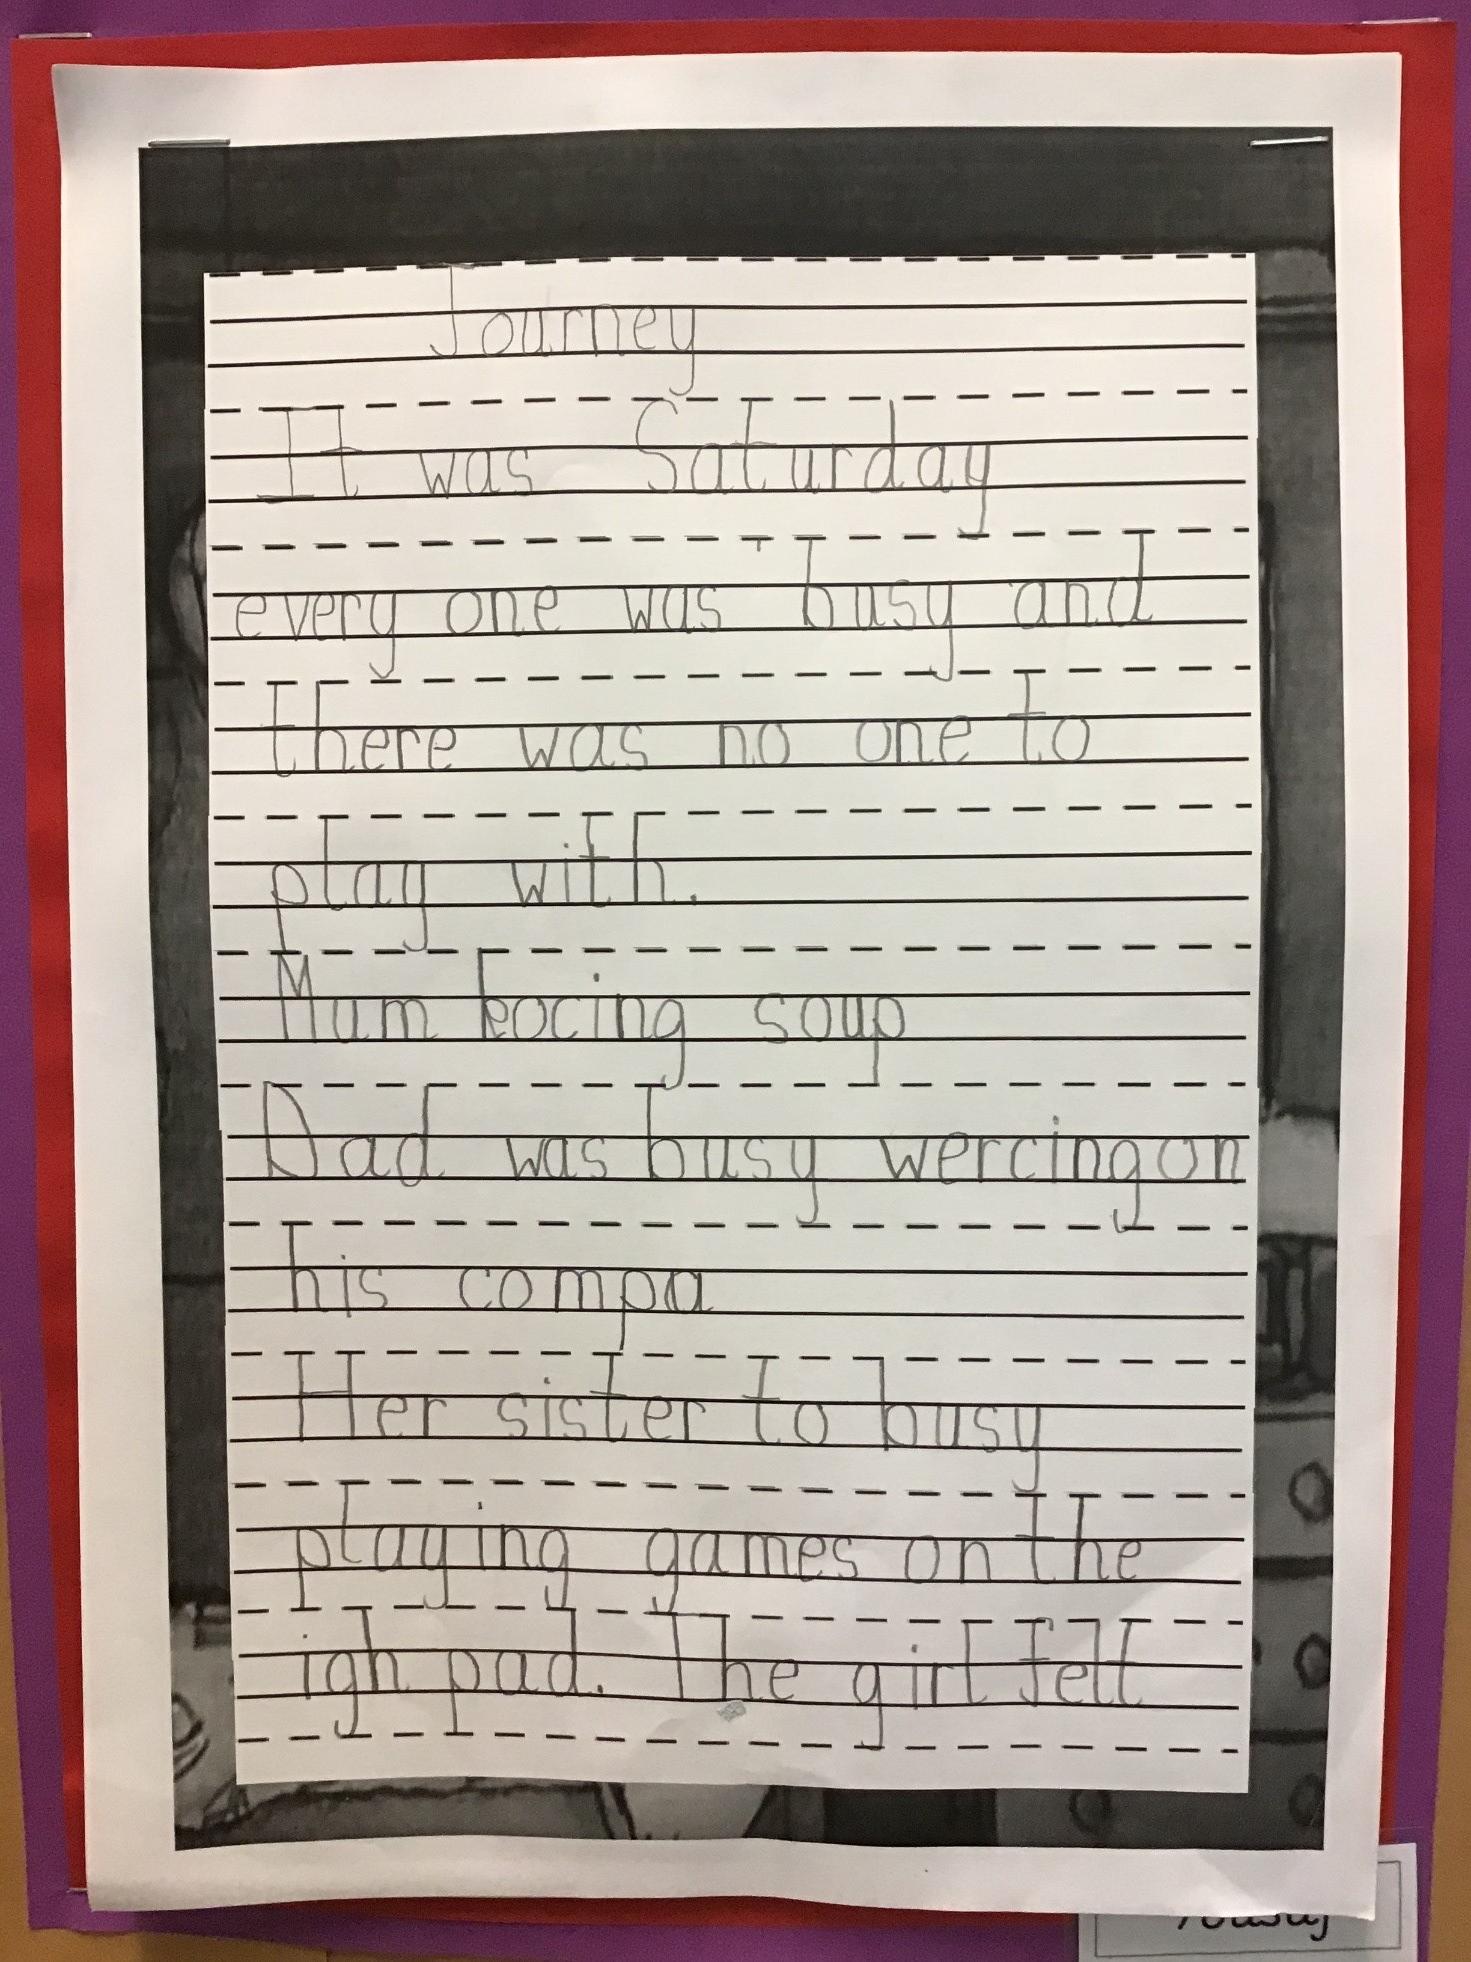 Journey
It was Saturday
every one was busy and
there was no one to
play with.
Mum kocing soup
Dad was busy wercing on
his compa
Her sister to busy
playing games on the
igh pad. The girl felt